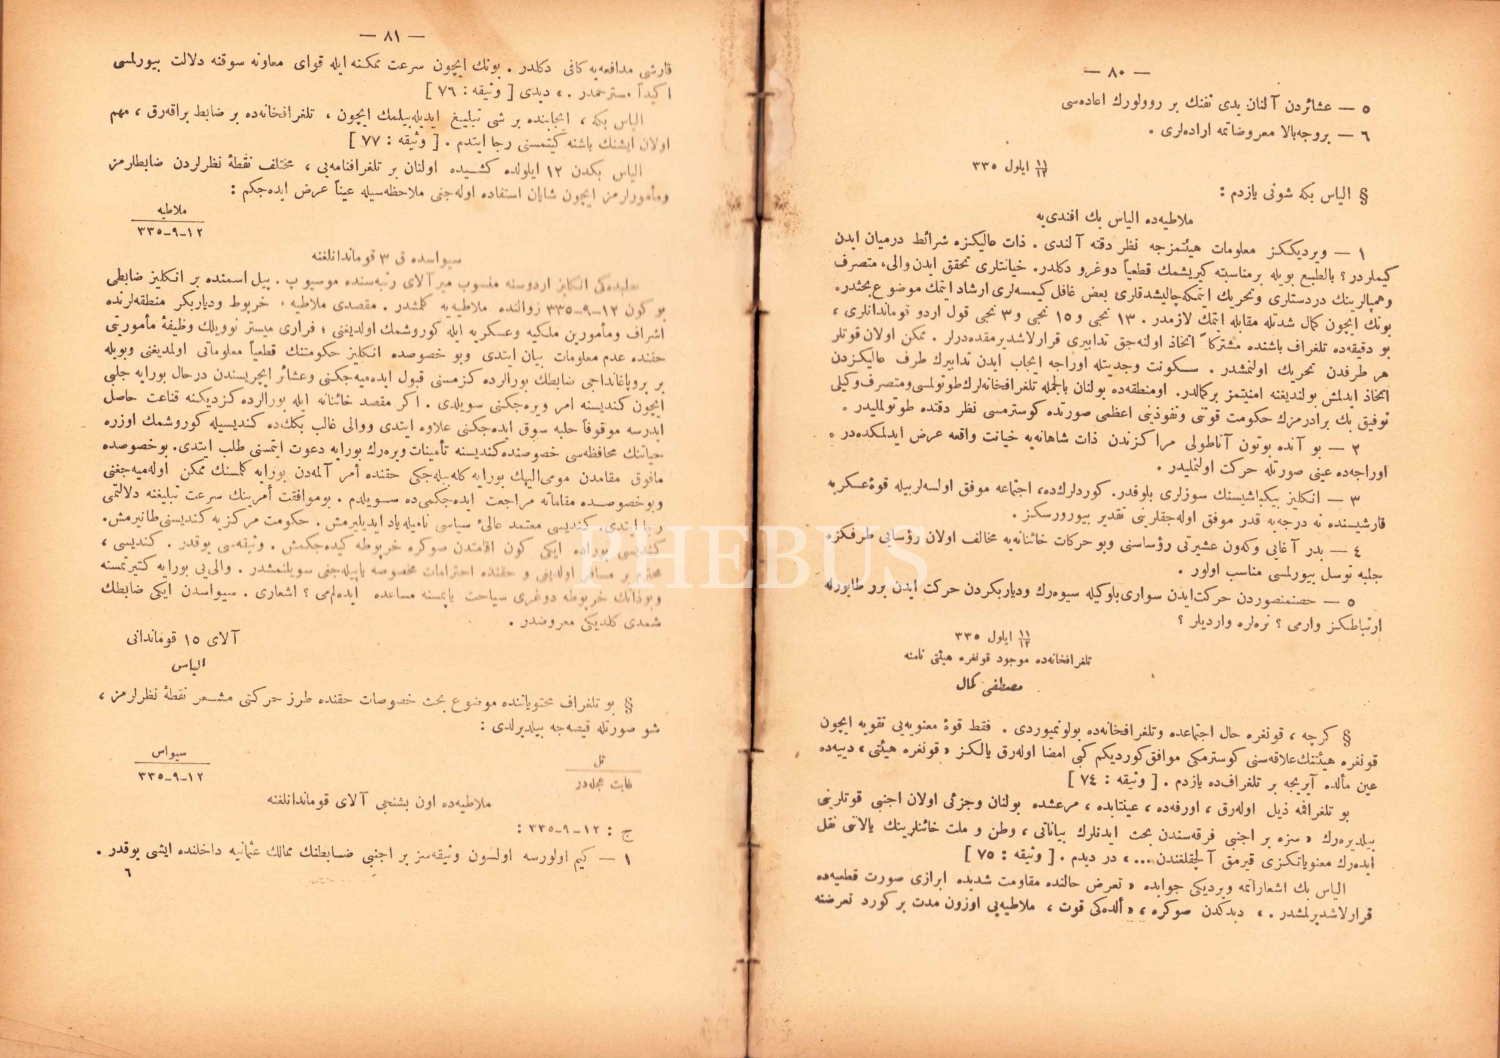 — ٨٠ —
٥ — عشائردن آلنان یدی تفنك بر روولورك اعاده‌سی
٦ — بروجه‌بالا معروضاتمه اراده‌لری .
١١/١٢ ایلول ٣٣٥
§ الیاس بكه شونی یازدم :
ملاطیه‌ده الیاس بك افندی‌یه
١ — ویردیككز معلومات هیئتمزجه نظر دقته آلندی . ذات عالیكزه شرائط درمیان ایدن
كیملردر؟ بالطبع بویله برمناسبته كیریشمك قطعیاً دوغرو دكلدر. خیانتلری تحقق ایدن والی، متصرف
وهمپالرینك دردستلری وتحریك ایتمكه چالیشدقلری بعض غافل كیمسه‌لری ارشاد ایتمك موضوع بحثدر.
بونك ایچون كمال شدتله مقابله ایتمك لازمدر. ١٣ نجی و١٥ نجی و٣ نجی قول اردو قوماندانلری ،
بو دقیقه‌ده تلغراف باشنده مشتركاً اتخاذ اولنه‌جق تدابیری قرارلاشدیرمقده‌درلر . ممكن اولان قوتلر
هر طرفدن تحریك اولنمشدر . سكونت وجدیتله اوراجه ایجاب ایدن تدابیرك طرف عالیكزدن
اتخاذ ایدلمش بولندیغنه امنیتمز بركمالدر. اومنطقه‌ده بولنان بالجمله تلغرافخانه‌لرك طوتولمسی ومتصرف وكیلی
توفیق بك برادرمزك حكومت قوتنی ونفوذینی اعظمی صورتده كوسترمسی نظر دقتده طوتولملیدر .
٢ — بو آنده بوتون آناطولی مراكزندن ذات شاهانه‌یه خیانت واقعه عرض ایدلمكده‌در .
اوراجه‌ده عینی صورتله حركت اولنملیدر .
٣ — انكلیز بیكباشیسنك سوزلری بلوفدر. كوردلرك‌ده، اجتماعه موفق اولسه‌لربیله قوۀ عسكریه
قارشیسنده نه درجه‌یه قدر موفق اوله‌جقلرینی تقدیر بیورورسكز .
٤ — بدر آغایی وكه‌ون عشیرتی رؤساسنی وبو حركات خائنانه‌یه مخالف اولان رؤسایی طرفكزه
جلبه توسل بیورلمسی مناسب اولور .
٥ — حصنمنصوردن حركت‌ایدن سواری‌بلوكیله سیوه‌رك ودیاربكردن حركت ایدن برر طابورله
ارتباطكز وارمی ؟ نره‌لره واردیلر ؟
١١/١٢ ایلول ٣٣٥
تلغرافخانه‌ده موجود قونغره هیئتی نامنه
مصطفی كمال
§ كرچه ، قونغره حال اجتماعده وتلغرافخانه‌ده بولونمیوردی . فقط قوۀ معنویه‌یی تقویه ایچون
قونغره هیئتنك‌علاقه‌سنی كوسترمكی موافق‌كوردیكم كبی امضا اوله‌رق یالكز « قونغره هیئتی » دییه‌ده
عین مآلده آیریجه بر تلغراف‌ده یازدم . [ وثیقه : ٧٤ ]
بو تلغرافه ذیل اوله‌رق ، اورفه‌ده ، عینتابده ، مرعشده بولنان وجزئی اولان اجنبی قوتلرینی
بیلدیره‌رك « سزه بر اجنبی فرقه‌سندن بحث ایدنلرك بیاناتی ، وطن و ملت خائنلرینك یالاننی نقل
ایده‌رك معنویاتكزی قیرمق آلچقلغندن... » در دیدم . [ وثیقه : ٧٥ ]
الیاس بك اشعاراتمه ویردیكی جوابده « تعرض حالنده مقاومت شدیده ابرازی صورت قطعیه‌ده
قرارلاشدیرلمشدر . » دیدكدن صوكره ، « ألده‌كی قوت ، ملاطیه‌یی اوزون مدت بر كورد تعرضنه
— ٨١ —
قارشی مدافعه‌یه كافی دكلدر . بونك ایچون سرعت ممكنه ایله قوای معاونه سوقنه دلالت بیورلمسی
اكیداً مسترحمدر . » دیدی [ وثیقه : ٧٦ ]
الیاس بكه ، ایجابنده بر شی تبلیغ ایدیله‌بیلمك ایچون ، تلغرافخانه‌ده بر ضابط براقه‌رق ، مهم
اولان ایشنك باشنه كیتمسنی رجا ایتدم . [ وثیقه : ٧٧ ]
الیاس بكدن ١٢ ایلولده كشیده اولنان بر تلغرافنامه‌یی ، مختلف نقطۀ نظرلردن ضابطلرمز
ومأمورلرمز ایچون شایان استفاده اوله‌جغی ملاحظه‌سیله عیناً عرض ایده‌جكم :
ملاطیه
١٢-٩-٣٣٥
سیواسده ق ٣ قوماندانلغنه
حلبده‌كی انكلیز اردوسنه منسوب میرآلای رتبه‌سنده موسیو پ . پیل اسمنده بر انكلیز ضابطی
بو كون ١٢-٩-٣٣٥ زوالنده ملاطیه‌یه كلمشدر . مقصدی ملاطیه ، خربوط ودیاربكر منطقه‌لرنده
اشراف ومأمورین ملكیه وعسكریه ایله كوروشمك اولدیغنی ؛ فراری میستر نوویلك وظیفۀ مأموریتی
حقنده عدم معلومات بیان ایتدی وبو خصوصده انكلیز حكومتنك قطعیاً معلوماتی اولمدیغنی وبویله
بر پروپاغانداجی ضابطك بورالرده كزمسنی قبول ایده‌میه‌جكنی وعشائر ایچریسندن درحال بورایه جلبی
ایچون كندیسنه امر ویره‌جكنی سویلدی . اكر مقصد خائنانه ایله بورالرده كزدیكنه قناعت حاصل
ایدرسه موقوفاً حلبه سوق ایده‌جكنی علاوه ایتدی ووالی غالب بكك‌ده كندیسیله كوروشمك اوزره
حیاتنك محافظه‌سی خصوصنده‌كندیسنه تأمینات ویره‌رك بورایه دعوت ایتمسنی طلب ایتدی. بوخصوصده
مافوق مقامدن مومی‌الیهك بورایه كله‌بیله‌جكی حقنده أمر آلمه‌دن بورایه كلمسنك ممكن اوله‌میه‌جغنی
وبوخصوصده مقاماته مراجعت ایده‌جكمی‌ده سویلدم . بوموافقت أمرینك سرعت تبلیغنه دلالتمی
رجا ایتدی. كندیسی معتمد عالیٔ سیاسی نامیله یاد ایدیلیرمش . حكومت مركزیه كندیسنی طانیرمش.
كندیسی بوراده ایكی كون اقامتدن صوكره خربوطه كیده‌جكمش . وثیقه‌سی یوقدر . كندیسی ،
محترم بر مسافر اولدیغی و حقنده احترامات مخصوصه یاپیله‌جغی سویلنمشدر . والی‌یی بورایه كتیرتمسنه
وبوذاتك خربوطه دوغری سیاحت یاپمسنه مساعده ایده‌لم‌می ؟ اشعاری . سیواسدن ایكی ضابطك
شمدی كلدیكی معروضدر .
آلای ١٥ قوماندانی
الیاس
§ بو تلغراف محتویاتنده موضوع بحث خصوصات حقنده طرز حركتی مشعر نقطۀ نظرلرمز ،
شو صورتله قیصه‌جه بیلدیرلدی :
سیواس
١٢-٩-٣٣٥
تل
غایت عجله‌در
ملاطیه‌ده اون بشنجی آلای قوماندانلغنه
ج : ١٢-٩-٣٣٥ :
١ — كیم اولورسه اولسون وثیقه‌سز بر اجنبی ضابطنك ممالك عثمانیه داخلنده ایشی یوقدر .
٦
PHEBUS